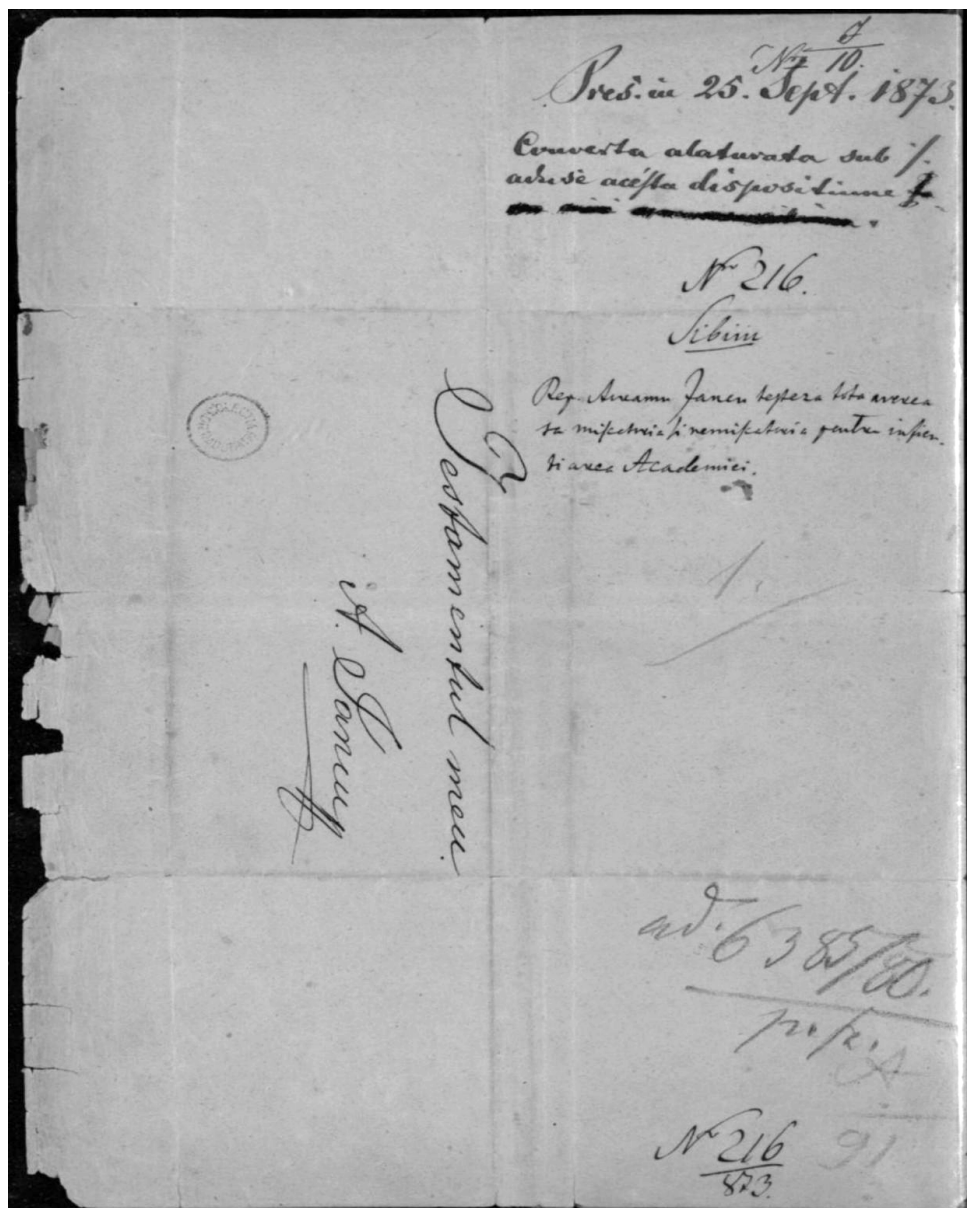 Nr 10.
Pres. in 25. Sept. 1873.
Couverta alaturata sub ·/.
aduse acésta dispositiune
Nr 216.
Sibiiu
Rep. Avramu Jancu testeza tota averea
sa mișcatoria și nemișcatoria pentru
Academiei.
1.
Testamentul meu.
A. Iancu
ad. 6385/80.
Nr 216
873.
91